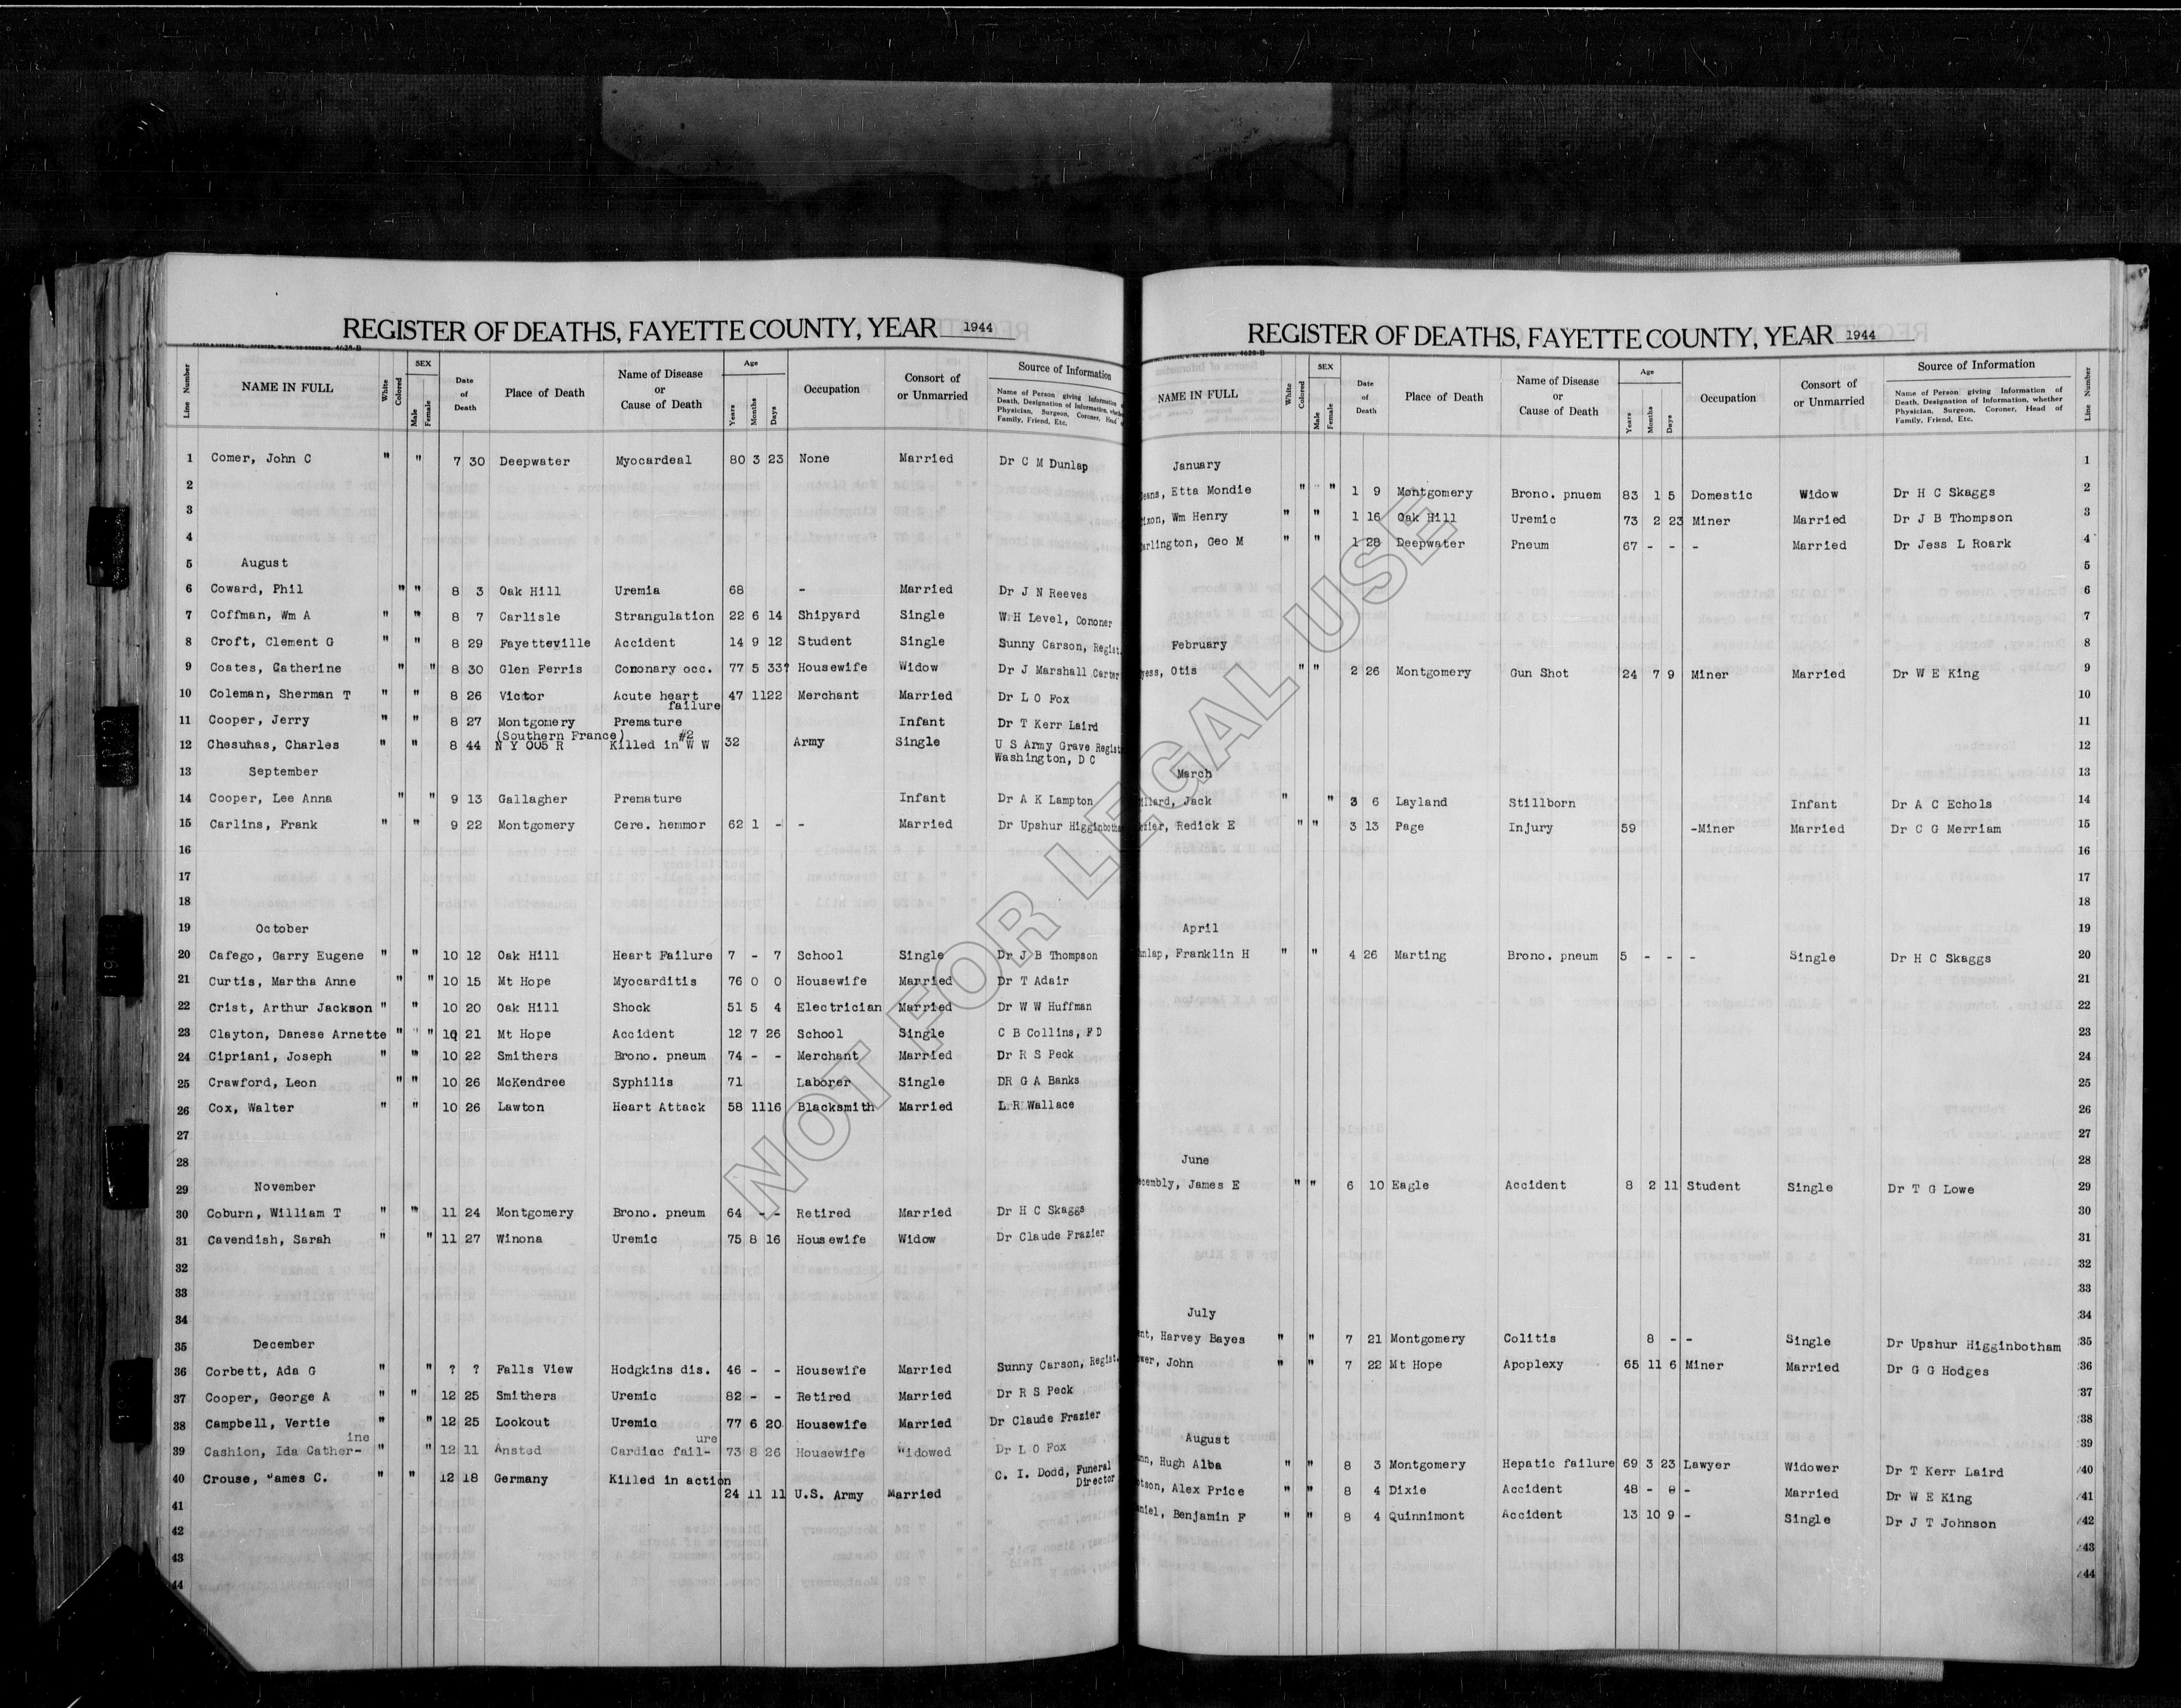 REGISTER OF DEATHS, FAYETTE COUNTY, YEAR 1944
Line Number NAME IN FULL White Colored SEX Male Female Date of Death Place of Death Name of Disease or Cause of Death Age Years Months Days Occupation Consort of or Unmarried Source of Information
Name of Person giving Information of Death, Designation of Information, whether Physician, Surgeon, Coroner, Head of Family, Friend, Etc.
1 Comer, John C " " 7 30 Deepwater Myocardeal 80 3 23 None Married Dr C M Dunlap
2
3
4
5 August
6 Coward, Phil " " 8 3 Oak Hill Uremia 68 - Married Dr J N Reeves
7 Coffman, Wm A " " 8 7 Carlisle Strangulation 22 6 14 Shipyard Single W H Level, Cononer
8 Croft, Clement G " " 8 29 Fayetteville Accident 14 9 12 Student Single Sunny Carson, Regist.
9 Coates, Catherine " " 8 30 Glen Ferris Coronary occ. 77 5 33? Housewife Widow Dr J Marshall Carter
10 Coleman, Sherman T " " 8 26 Victor Acute heart failure 47 11 22 Merchant Married Dr L O Fox
11 Cooper, Jerry " " 8 27 Montgomery Premature Infant Dr T Kerr Laird
12 Chesuhas, Charles " " 8 44 (Southern France) N Y 005 R Killed in W W #2 32 Army Single U S Army Grave Regist
Washington, D C
13 September
14 Cooper, Lee Anna " " 9 13 Gallagher Premature Infant Dr A K Lampton
15 Carlins, Frank " " 9 22 Montgomery Cere. hemmor 62 1 - - Married Dr Upshur Higginbotha
16
17
18
19 October
20 Cafego, Garry Eugene " " 10 12 Oak Hill Heart Failure 7 - 7 School Single Dr J B Thompson
21 Curtis, Martha Anne " " 10 15 Mt Hope Myocarditis 76 0 0 Housewife Married Dr T Adair
22 Crist, Arthur Jackson " " 10 20 Oak Hill Shock 51 5 4 Electrician Married Dr W W Huffman
23 Clayton, Danese Arnette " " " 10 21 Mt Hope Accident 12 7 26 School Single C B Collins, F D
24 Cipriani, Joseph " " 10 22 Smithers Brono. pneum 74 - - Merchant Married Dr R S Peck
25 Crawford, Leon " " 10 26 McKendree Syphilis 71 Laborer Single DR G A Banks
26 Cox, Walter " " 10 26 Lawton Heart Attack 58 11 16 Blacksmith Married L R Wallace
27
28
29 November
30 Coburn, William T " " 11 24 Montgomery Brono. pneum 64 - - Retired Married Dr H C Skaggs
31 Cavendish, Sarah " " 11 27 Winona Uremic 75 8 16 Housewife Widow Dr Claude Frazier
32
33
34
35 December
36 Corbett, Ada G " " ? ? Falls View Hodgkins dis. 46 - - Housewife Married Sunny Carson, Regist.
37 Cooper, George A " " 12 25 Smithers Uremic 82 - - Retired Married Dr R S Peck
38 Campbell, Vertie " " 12 25 Lookout Uremic 77 6 20 Housewife Married Dr Claude Frazier
39 Cashion, Ida Cather-ine " " 12 11 Ansted Cardiac fail-ure 73 8 26 Housewife "idowed Dr L O Fox
40 Crouse, James C. " " 12 18 Germany Killed in action C. I. Dodd, Funeral Director
41 24 11 11 U.S. Army Married
42
43
44
REGISTER OF DEATHS, FAYETTE COUNTY, YEAR 1944
NAME IN FULL White Colored SEX Male Female Date of Death Place of Death Name of Disease or Cause of Death Age Years Months Days Occupation Consort of or Unmarried Source of Information Line Number
Name of Person giving Information of Death, Designation of Information, whether Physician, Surgeon, Coroner, Head of Family, Friend, Etc.
January 1
Etta Mondie " " " 1 9 Montgomery Brono. pnuem 83 1 5 Domestic Widow Dr H C Skaggs 2
Wm Henry " " 1 16 Oak Hill Uremic 73 2 23 Miner Married Dr J B Thompson 3
Geo M " " 1 28 Deepwater Pneum 67 - - - Married Dr Jess L Roark 4
5
6
7
February 8
Otis " " 2 26 Montgomery Gun Shot 24 7 9 Miner Married Dr W E King 9
10
11
12
March 13
Jack " " 3 6 Layland Stillborn Infant Dr A C Echols 14
Redick E " " 3 13 Page Injury 59 -Miner Married Dr C G Merriam 15
16
17
18
April 19
Franklin H " " 4 26 Marting Brono. pneum 5 - - - Single Dr H C Skaggs 20
21
22
23
24
25
26
27
June 28
James E " " 6 10 Eagle Accident 8 2 11 Student Single Dr T G Lowe 29
30
31
32
33
July 34
Harvey Bayes " " 7 21 Montgomery Colitis 8 - - Single Dr Upshur Higginbotham 35
John " " 7 22 Mt Hope Apoplexy 65 11 6 Miner Married Dr G G Hodges 36
37
38
August 39
Hugh Alba " " 8 3 Montgomery Hepatic failure 69 3 23 Lawyer Widower Dr T Kerr Laird 40
Alex Price " " 8 4 Dixie Accident 48 - 0 - Married Dr W E King 41
Benjamin F " " 8 4 Quinnimont Accident 13 10 9 - Single Dr J T Johnson 42
43
44
NOT FOR LEGAL USE